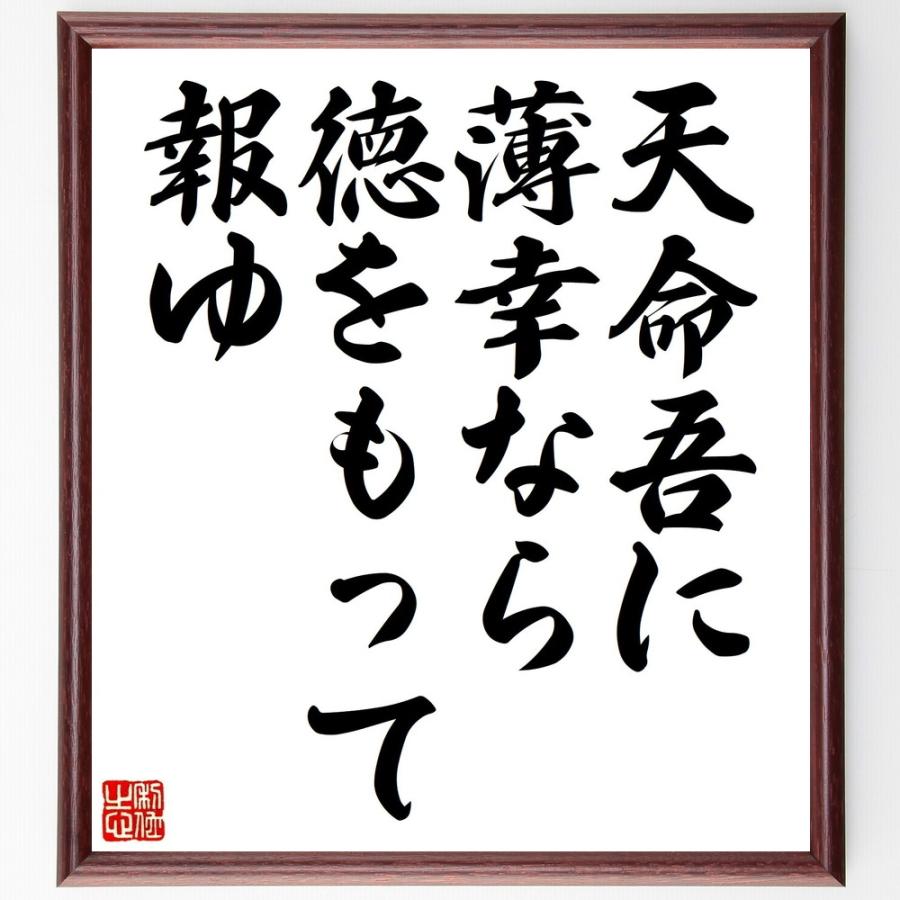 天命吾に
薄幸なら
徳をもって
報ゆ